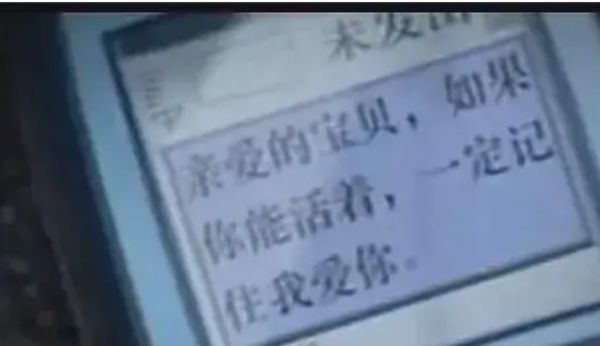 未发出
亲爱的宝贝，如果
你能活着，一定记
住我爱你。